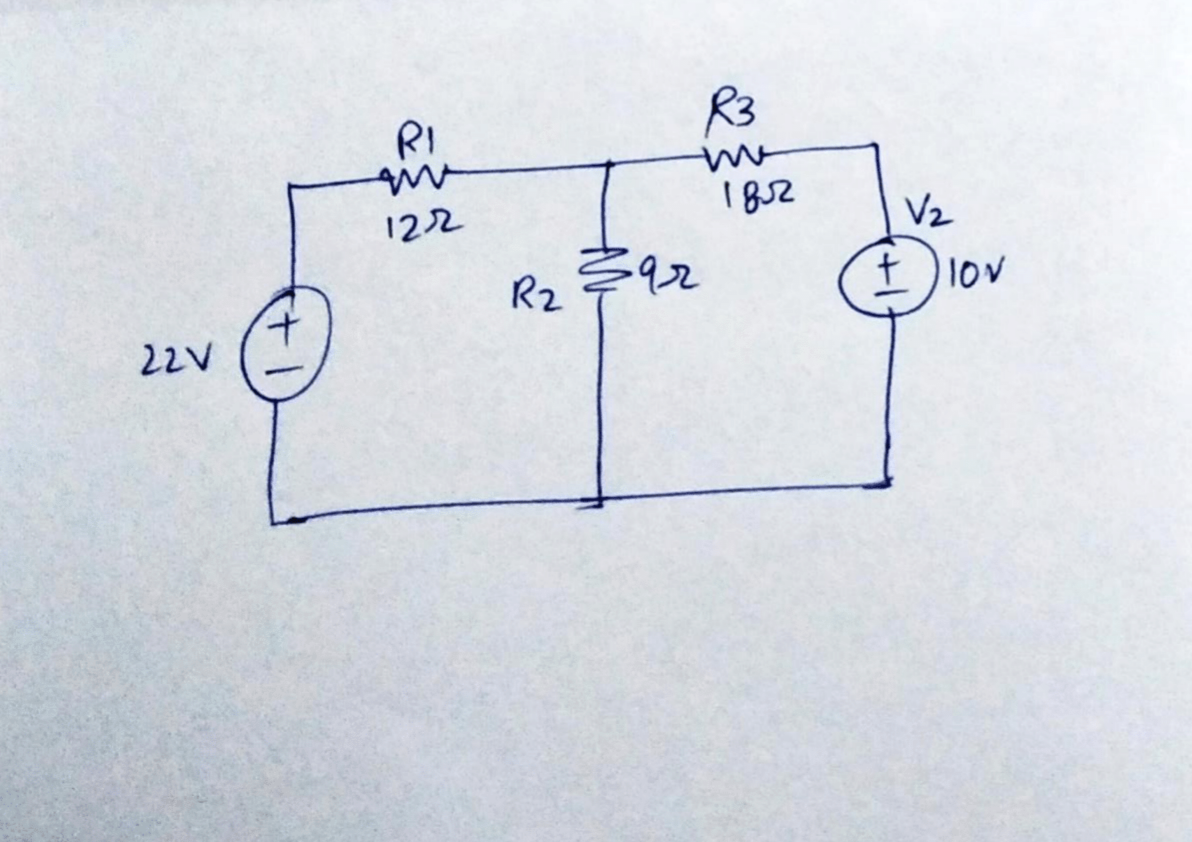 R1
12Ω
R3
18Ω
R2
9Ω
V2
+
−
10V
22V
+
−